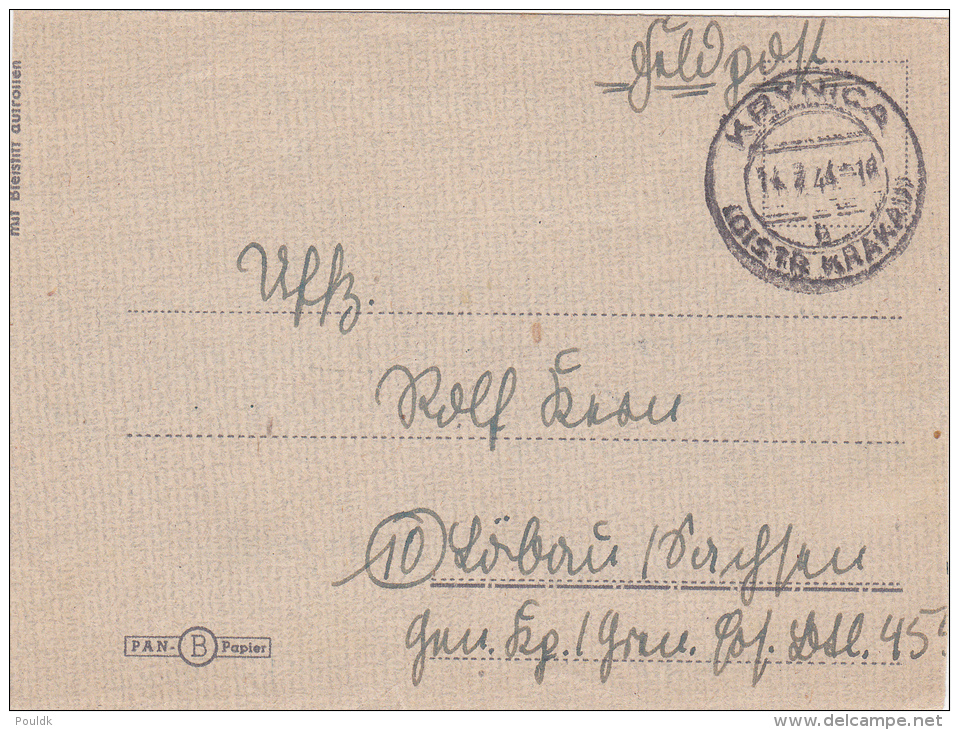 mit Bleistift aufrollen
Feldpost
KRYNICA
14.7.44-10
b
(DISTR KRAKAU)
Uffz.
Rolf Kron
10 Löbau /Sachsen
PAN- B Papier
Gen. Kp. / Gren. Btl. 45
Pouldk
www.delcampe.net